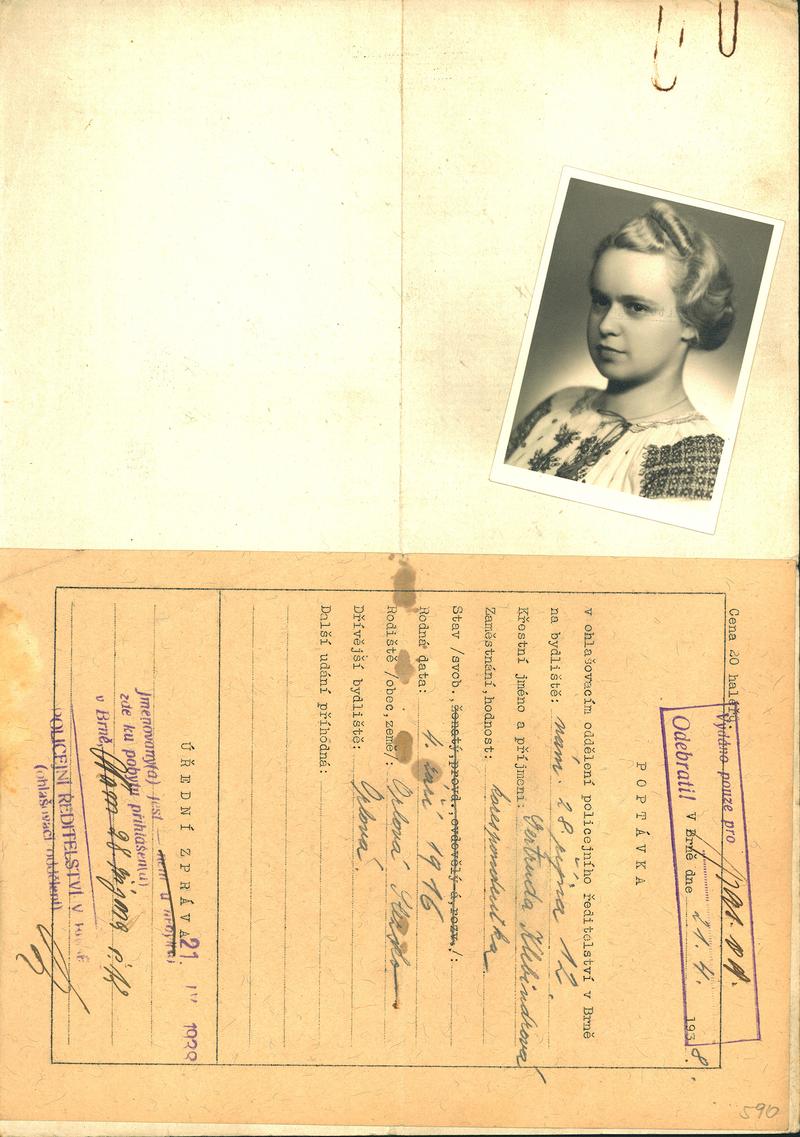 Cena 20 haléřů.
Vydáno pouze pro
pas. od.
Odebratil
V Brně dne 21. 4. 1938.
POPTÁVKA
v ohlašovacím oddělení policejního ředitelství v Brně
na bydliště: nám. 28. října 12.
Křestní jméno a příjmení: Gertruda Klebindrová
Zaměstnání, hodnost: korespondentka
Stav /svob., ženatý, provd., ovdovělý-á, rozv./:
Rodná data: 4. září 1916
Rodiště /obec, země/: Orlová Slezsko
Dřívější bydliště: Orlová.
Další udání příhodná:
ÚŘEDNÍ ZPRÁVA
21. IV 1938
Jmenovaný(á) jest – není
zde ku pobytu přihlášen(a)
v Brně, nám 28 října č. 12
POLICEJNÍ ŘEDITELSTVÍ V BRNĚ
(ohlašovací oddělení)
590